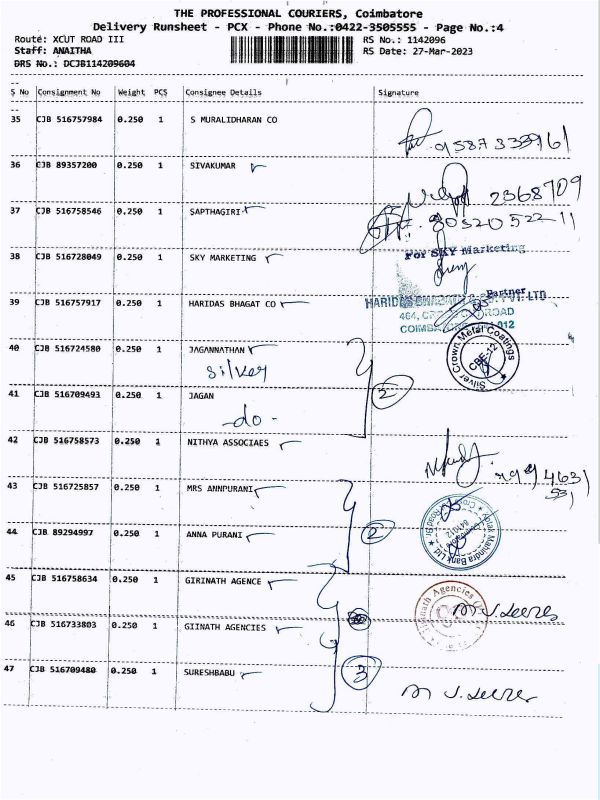 THE PROFESSIONAL COURIERS, Coimbatore
Delivery Runsheet - PCX - Phone No.:0422-3505555 - Page No.:4
Route: XCUT ROAD III RS No.: 1142096
Staff: ANAITHA RS Date: 27-Mar-2023
DRS No.: DCJB114209604
S No Consignment No Weight PCS Consignee Details Signature
35 CJB 516757984 0.250 1 S MURALIDHARAN CO
36 CJB 89357200 0.250 1 SIVAKUMAR 2368709
37 CJB 516758546 0.250 1 SAPTHAGIRI
38 CJB 516728049 0.250 1 SKY MARKETING For SKY Marketing
Partner
39 CJB 516757917 0.250 1 HARIDAS BHAGAT CO
40 CJB 516724580 0.250 1 JAGANNATHAN Silver Crown Metal Coatings
silver
41 CJB 516709493 0.250 1 JAGAN 2
-do-
42 CJB 516758573 0.250 1 NITHYA ASSOCIAES
43 CJB 516725857 0.250 1 MRS ANNPURANI
44 CJB 89294997 0.250 1 ANNA PURANI 2 Mahindra Bank Ltd
45 CJB 516758634 0.250 1 GIRINATH AGENCE
46 CJB 516733803 0.250 1 GIINATH AGENCIES
47 CJB 516709480 0.250 1 SURESHBABU 3